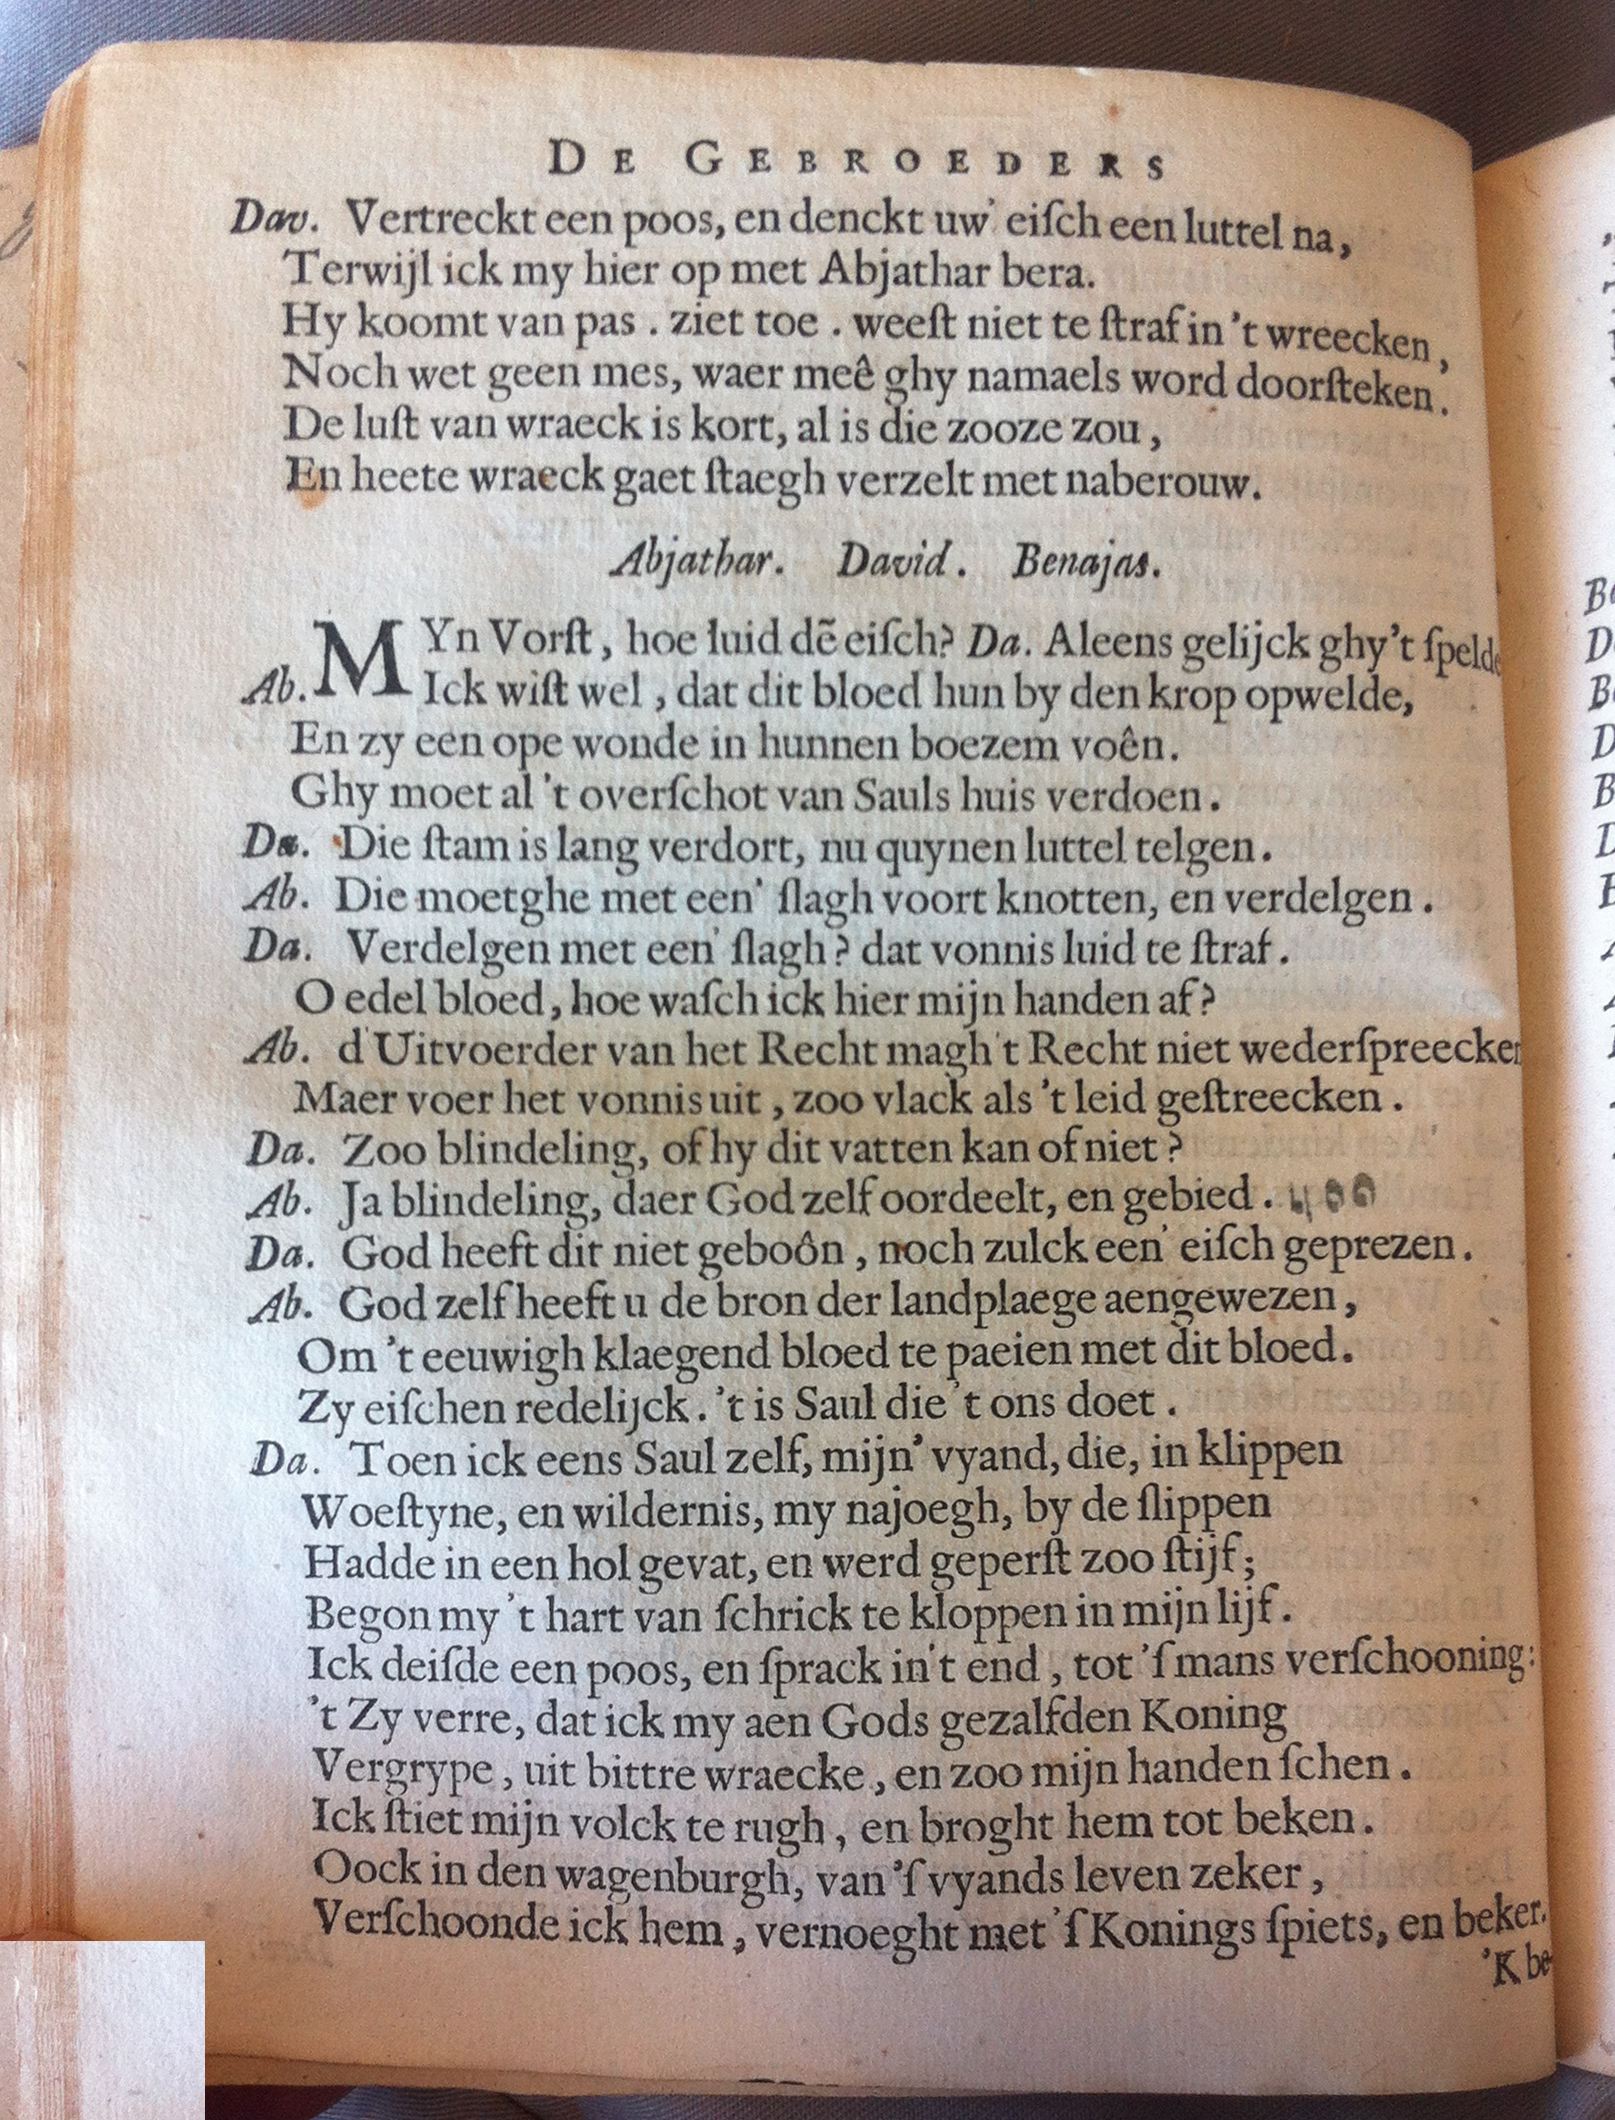 DE GEBROEDERS
Dav. Vertreckt een poos, en denckt uw' eiſch een luttel na,
Terwijl ick my hier op met Abjathar bera.
Hy koomt van pas . ziet toe . weeſt niet te ſtraf in 't wreecken,
Noch wet geen mes, waer meê ghy namaels word doorſteken.
De luſt van wraeck is kort, al is die zooze zou,
En heete wraeck gaet ſtaegh verzelt met naberouw.
Abjathar. David. Benajas.
MYn Vorſt, hoe luid dẽ eiſch? Da. Aleens gelijck ghy't ſpelde
Ab. Ick wiſt wel, dat dit bloed hun by den krop opwelde,
En zy een ope wonde in hunnen boezem voên.
Ghy moet al 't overſchot van Sauls huis verdoen.
Da. Die ſtam is lang verdort, nu quynen luttel telgen.
Ab. Die moetghe met een' ſlagh voort knotten, en verdelgen.
Da. Verdelgen met een' ſlagh? dat vonnis luid te ſtraf.
O edel bloed, hoe waſch ick hier mijn handen af?
Ab. d'Uitvoerder van het Recht magh't Recht niet wederſpreecken
Maer voer het vonnis uit, zoo vlack als 't leid geſtreecken.
Da. Zoo blindeling, of hy dit vatten kan of niet?
Ab. Ja blindeling, daer God zelf oordeelt, en gebied. 400
Da. God heeft dit niet geboôn, noch zulck een' eiſch geprezen.
Ab. God zelf heeft u de bron der landplaege aengewezen,
Om 't eeuwigh klaegend bloed te paeien met dit bloed.
Zy eiſchen redelijck. 't is Saul die 't ons doet.
Da. Toen ick eens Saul zelf, mijn' vyand, die, in klippen
Woeſtyne, en wildernis, my najoegh, by de ſlippen
Hadde in een hol gevat, en werd geperſt zoo ſtijf;
Begon my 't hart van ſchrick te kloppen in mijn lijf.
Ick deiſde een poos, en ſprack in't end, tot 'ſ mans verſchooning:
't Zy verre, dat ick my aen Gods gezalfden Koning
Vergrype, uit bittre wraecke, en zoo mijn handen ſchen.
Ick ſtiet mijn volck te rugh, en broght hem tot beken.
Oock in den wagenburgh, van 'ſ vyands leven zeker,
Verſchoonde ick hem, vernoeght met 'ſ Konings ſpiets, en beker.
'K be-